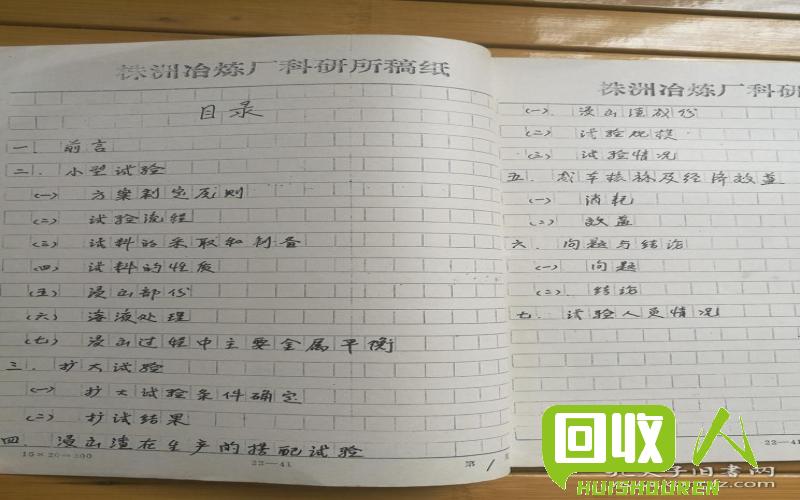 株洲冶炼厂科研所稿纸
目录
一. 前言
二. 小型试验
(一) 方案制定原则
(二) 试验流程
(三) 试料的采取和制备
(四) 试料的性质
(五) 浸出部份
(六) 溶液处理
(七) 浸出过程中主要金属平衡
三. 扩大试验
(一) 扩大试验条件确定
(二) 扩试结果
四. 浸出渣在生产的搭配试验
15×20=300
22—41
第 1
株洲冶炼厂科研
(一). 浸出渣成份
(二) 试验规模
(三) 试验情况
五. 成本核标及经济效益
(一) 消耗
(二) 效益
六. 问题与结论
(一) 问题
(二). 结论
七. 试验人员情况
22—41
回收人
HUISHOUREN